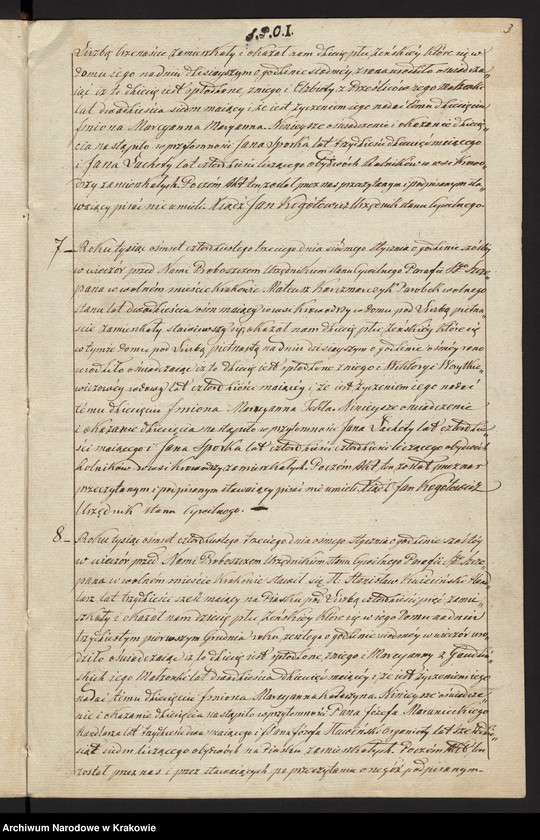 S.P.O.I.
3
Liczbą trzynaście zamieszkały i okazał nam dziecię płci żeńskiej które się w
domu jego na dniu dzisiejszym o godzinie siódmej z rana urodziło oświadcza„
jąc iż to dziecię jest spłodzone z niego i Elżbiety z jego Małżonki
lat dwadzieścia siedm mający i że jest życzeniem jego nadać temu dziecięciu
Imiona Maryanna Maryanna. Niniejsze oświadczenie i okazanie dziecię„
cia nastąpiło w przytomności Jana Sporka lat trzydzieści dziewięć mającego
i Jana Lachety lat czterdzieści liczącego obydwóch Rolników w wsi Krowo„
drzy zamieszkałych. Poczem Akt ten został przez nas przeczytanym i podpisanym sta„
wający pisać nie umieli. Xiądz Jan Urzędnik stanu Cywilnego.
7 Roku tysiąc ośmset czterdziestego trzeciego dnia siódmego Stycznia o godzinie szóstéj
w wieczór przed Nami Proboszczem Urzędnikiem stanu Cywilnego Parafii Sgo Szcze„
pana w wolnem mieście Krakowie Mateusz Karczmarczyk Parobek wolnego
stanu lat dwadzieścia ośm mający w wsi Krowodrzy w domu pod Liczbą piętna„
ście zamieszkały stawiwszy się, okazał nam dziecię płci żeńskiej które się
w tymże domu pod Liczbą piętnastą na dniu dzisiejszym o godzinie ósméj rano
urodziło oświadczając iż to dziecię jest spłodzone z niego i Wiktoryi
wdowy lat czterdzieści mającéj i że jest życzeniem jego nadać
temu dziecięciu Imiona Maryanna Tekla. Niniejsze oświadczenie
i okazanie dziecięcia nastąpiło w przytomności Jana Lachety lat czterdzie„
ści mającego i Jana Sporka lat czterdzieści liczącego obydwóch
Rolników w wsi Krowodrzy zamieszkałych. Poczem Akt ten został przez nas
przeczytanym i podpisanym stawający pisać nie umieli. Xiądz Jan
Urzędnik stanu Cywilnego.
8 Roku tysiąc ośmset czterdziestego trzeciego dnia ósmego Stycznia o godzinie szóstéj
w wieczór przed Nami Proboszczem Urzędnikiem stanu Cywilnego Parafii Sgo Szcze„
pana w wolnem mieście Krakowie stawił się St. Stanisław
lat trzydzieści sześć mający na Piasku pod Liczbą czterdzieści pięć zamie„
szkały i okazał nam dziecię płci żeńskiéj które się w jego Domu na dniu
trzydziestym pierwszym Grudnia roku zeszłego o godzinie siódmej w wieczór uro„
dziło oświadczając iż to dziecię jest spłodzone z niego i Maryanny z
skich jego Małżonki lat dwadzieścia dziewięć mającéj i że jest życzeniem jego
nadać temu dziecięciu Imiona Maryanna Katarzyna. Niniejsze oświadcze„
nie i okazanie dziecięcia nastąpiło w przytomności Pana Józefa
lat trzydzieści dwa mającego i Pana Józefa Organisty lat sześćdzie„
siąt siedm liczącego obydwóch na Piasku zamieszkałych. Poczem Akt ten
został przez nas i przez stawających po przeczytaniu onegoż podpisanym
Archiwum Narodowe w Krakowie